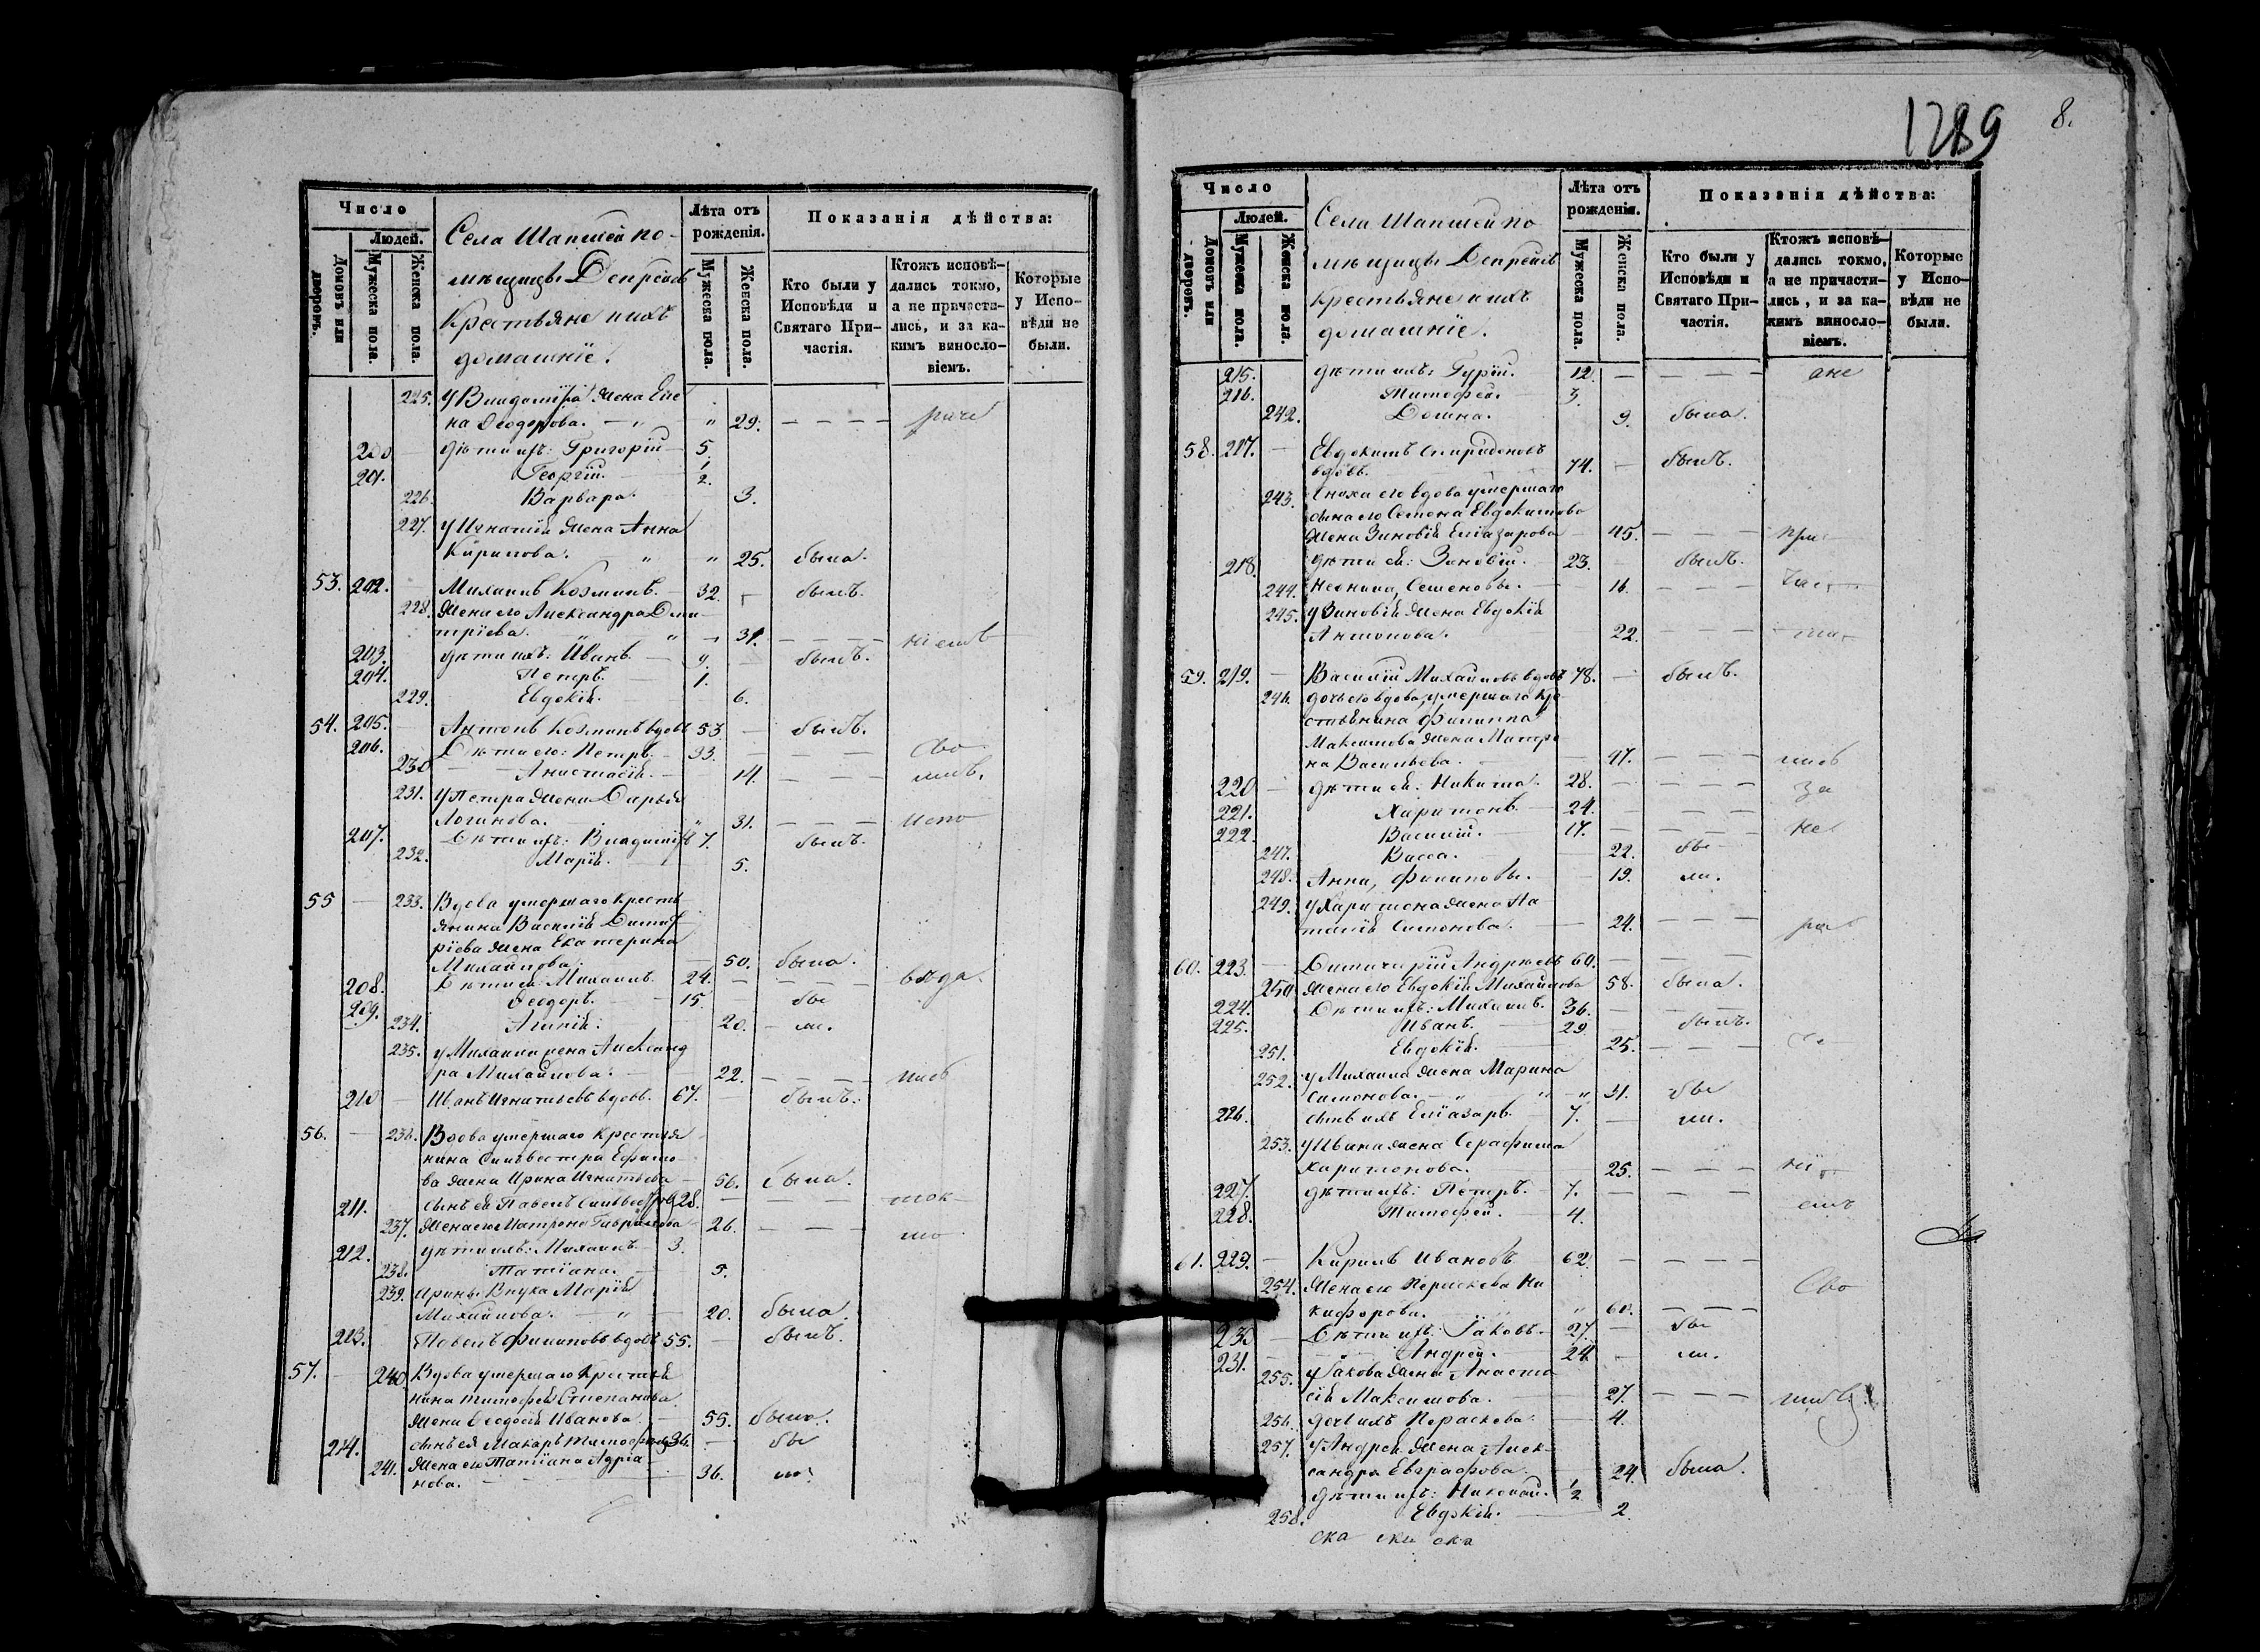 Число
Людей.
Домовъ или дворовъ.
Мужеска пола.
Женска пола.
Села Шапшей по-
мѣщицы Депрейсъ
Крестьяне и ихъ
домашніе.
Лѣта отъ рожденія.
Мужеска пола.
Женска пола.
Показанія дѣйства:
Кто были у Исповѣди и Святаго При-частія.
Ктожъ исповѣ-дались токмо, а не причасти-лись, и за ка-кимъ винosло-віемъ.
Которые у Испо-вѣди не были.
225. У Владимира жена Еле
на Ѳеодорова. " 29.
200 дѣти ихъ: Григорій 5.
201. Георгій. 1/2.
226. Варвара. 3.
227. У Игнатія жена Анна
Кирилова. " " 25. была.
53. 202. Михаилъ Козминъ. 32. былъ.
228. Жена его Александра Дми
тріева. " 31.
203. дѣти ихъ: Иванъ. 9. былъ.
204. Петръ. 1.
229. Евдокія. 6.
54. 205. Антонъ Козминъ вдовъ 53. былъ.
206. Дѣти его: Петръ. 33. Сво
230 Анастасія. 14.
231. У Петра жена Дарья
Логинова. 31. испо
207. Дѣти ихъ: Владимиръ 7. былъ.
232. Марія. 5.
55 233. Вдова умершаго кресть
янина Василія Димит
ріева жена Екатерина
Михайлова. 50. была.
208. Дѣти ея: Михаилъ. 24.
209. Ѳеодоръ. 15. бы
234. 20. ли.
235. у Михаила жена Александ
ра Михайлова. 22.
210 Иванъ Игнатьевъ вдовъ. 67. былъ.
56. 236. Вдова умершаго крестья
нина Сильвестра Ефимо
ва жена Ирина Игнатьева 56. была.
211. сынъ ея Павелъ Сильвестровъ 28. ток
237. Жена его Матрона Гаврилова 26. мо
212. дѣти ихъ: Михаилъ 3.
238. Татіана. 5.
239. Ирины внука Марія
Михайлова. " 20. была.
213. Павелъ Филиповъ вдовъ 55. былъ.
57. 240 Вдова умершаго крестья
нина Тимофея Степанова
жена Ѳеодосія Иванова. 55. была.
214. сынъ ея Макаръ Тимофеевъ 36. бы
241. Жена его Татіана Адріа
нова. 36. ли.
1289
8.
Число
Людей.
Домовъ или дворовъ.
Мужеска пола.
Женска пола.
Села Шапшей по
мѣщицы Депрейсъ
Крестьяне и ихъ
домашніе.
Лѣта отъ рожденія.
Мужеска пола.
Женска пола.
Показанія дѣйства:
Кто были у Исповѣди и Святаго При-частія.
Ктожъ исповѣ-дались токмо, а не причасти-лись, и за ка-кимъ винosло-віемъ.
Которые у Испо-вѣди не были.
215. дѣти ихъ: Гурій. 12. ане
216. Тимофей. 3.
242. Домна. 9. была.
58. 217. Евдокимъ Спиридоновъ
вдовъ. 74. былъ.
243. Сноха его вдова умершаго
сына его Семена Евдокимова
жена Зиновія Еліазарова 45. при
218. дѣти ея: Зиновій. 23. былъ.
244. Неонила, Семеновы. 16. час
245. у Зиновія жена Евдокія
Антонова. 22.
59. 219. Василій Михайловъ вдовъ 78. былъ.
246. дочь его вдова, умершаго кре
стьянина Филиппа
Максимова жена Матро
на Васильева. 47.
220 дѣти ея: Никита. 28. за
221. Харитонъ. 24.
222. Василій. 17. не
247. Васса. 22. бы
248. Анна, Филиповы. 19. ли.
249. у Харитона жена На
талія Симонова. 24.
60. 223. Димитрій Андреевъ 60.
250 жена его Евдокія Михайлова 58. была.
224. Дѣти ихъ: Михаилъ. 36.
225. Иванъ. 29. былъ.
251. Евдокія. 25.
252. у Михаила жена Марина
Симонова. " " " 31. бы
226. сынъ ихъ Еліазаръ. 7. ли.
253. у Ивана жена Серафима
Харитонова. 25.
227. дѣти ихъ: Петръ. 7.
228. Тимофей. 4.
61. 229. Кирилъ Ивановъ 62.
254. Жена его Параскева Ни
кифорова. " 60. Сво
230 Дѣти ихъ: Іаковъ. 27. бы
231. Андрей. 24. ли.
255. у Іакова жена Анаста
сія Максимова. 27.
256. дочь ихъ Параскева 4.
257. у Андрея жена Алек
сандра Евграфова. 24. была.
дѣти ихъ: Николай. 1/2
258. Евдокія. 2.